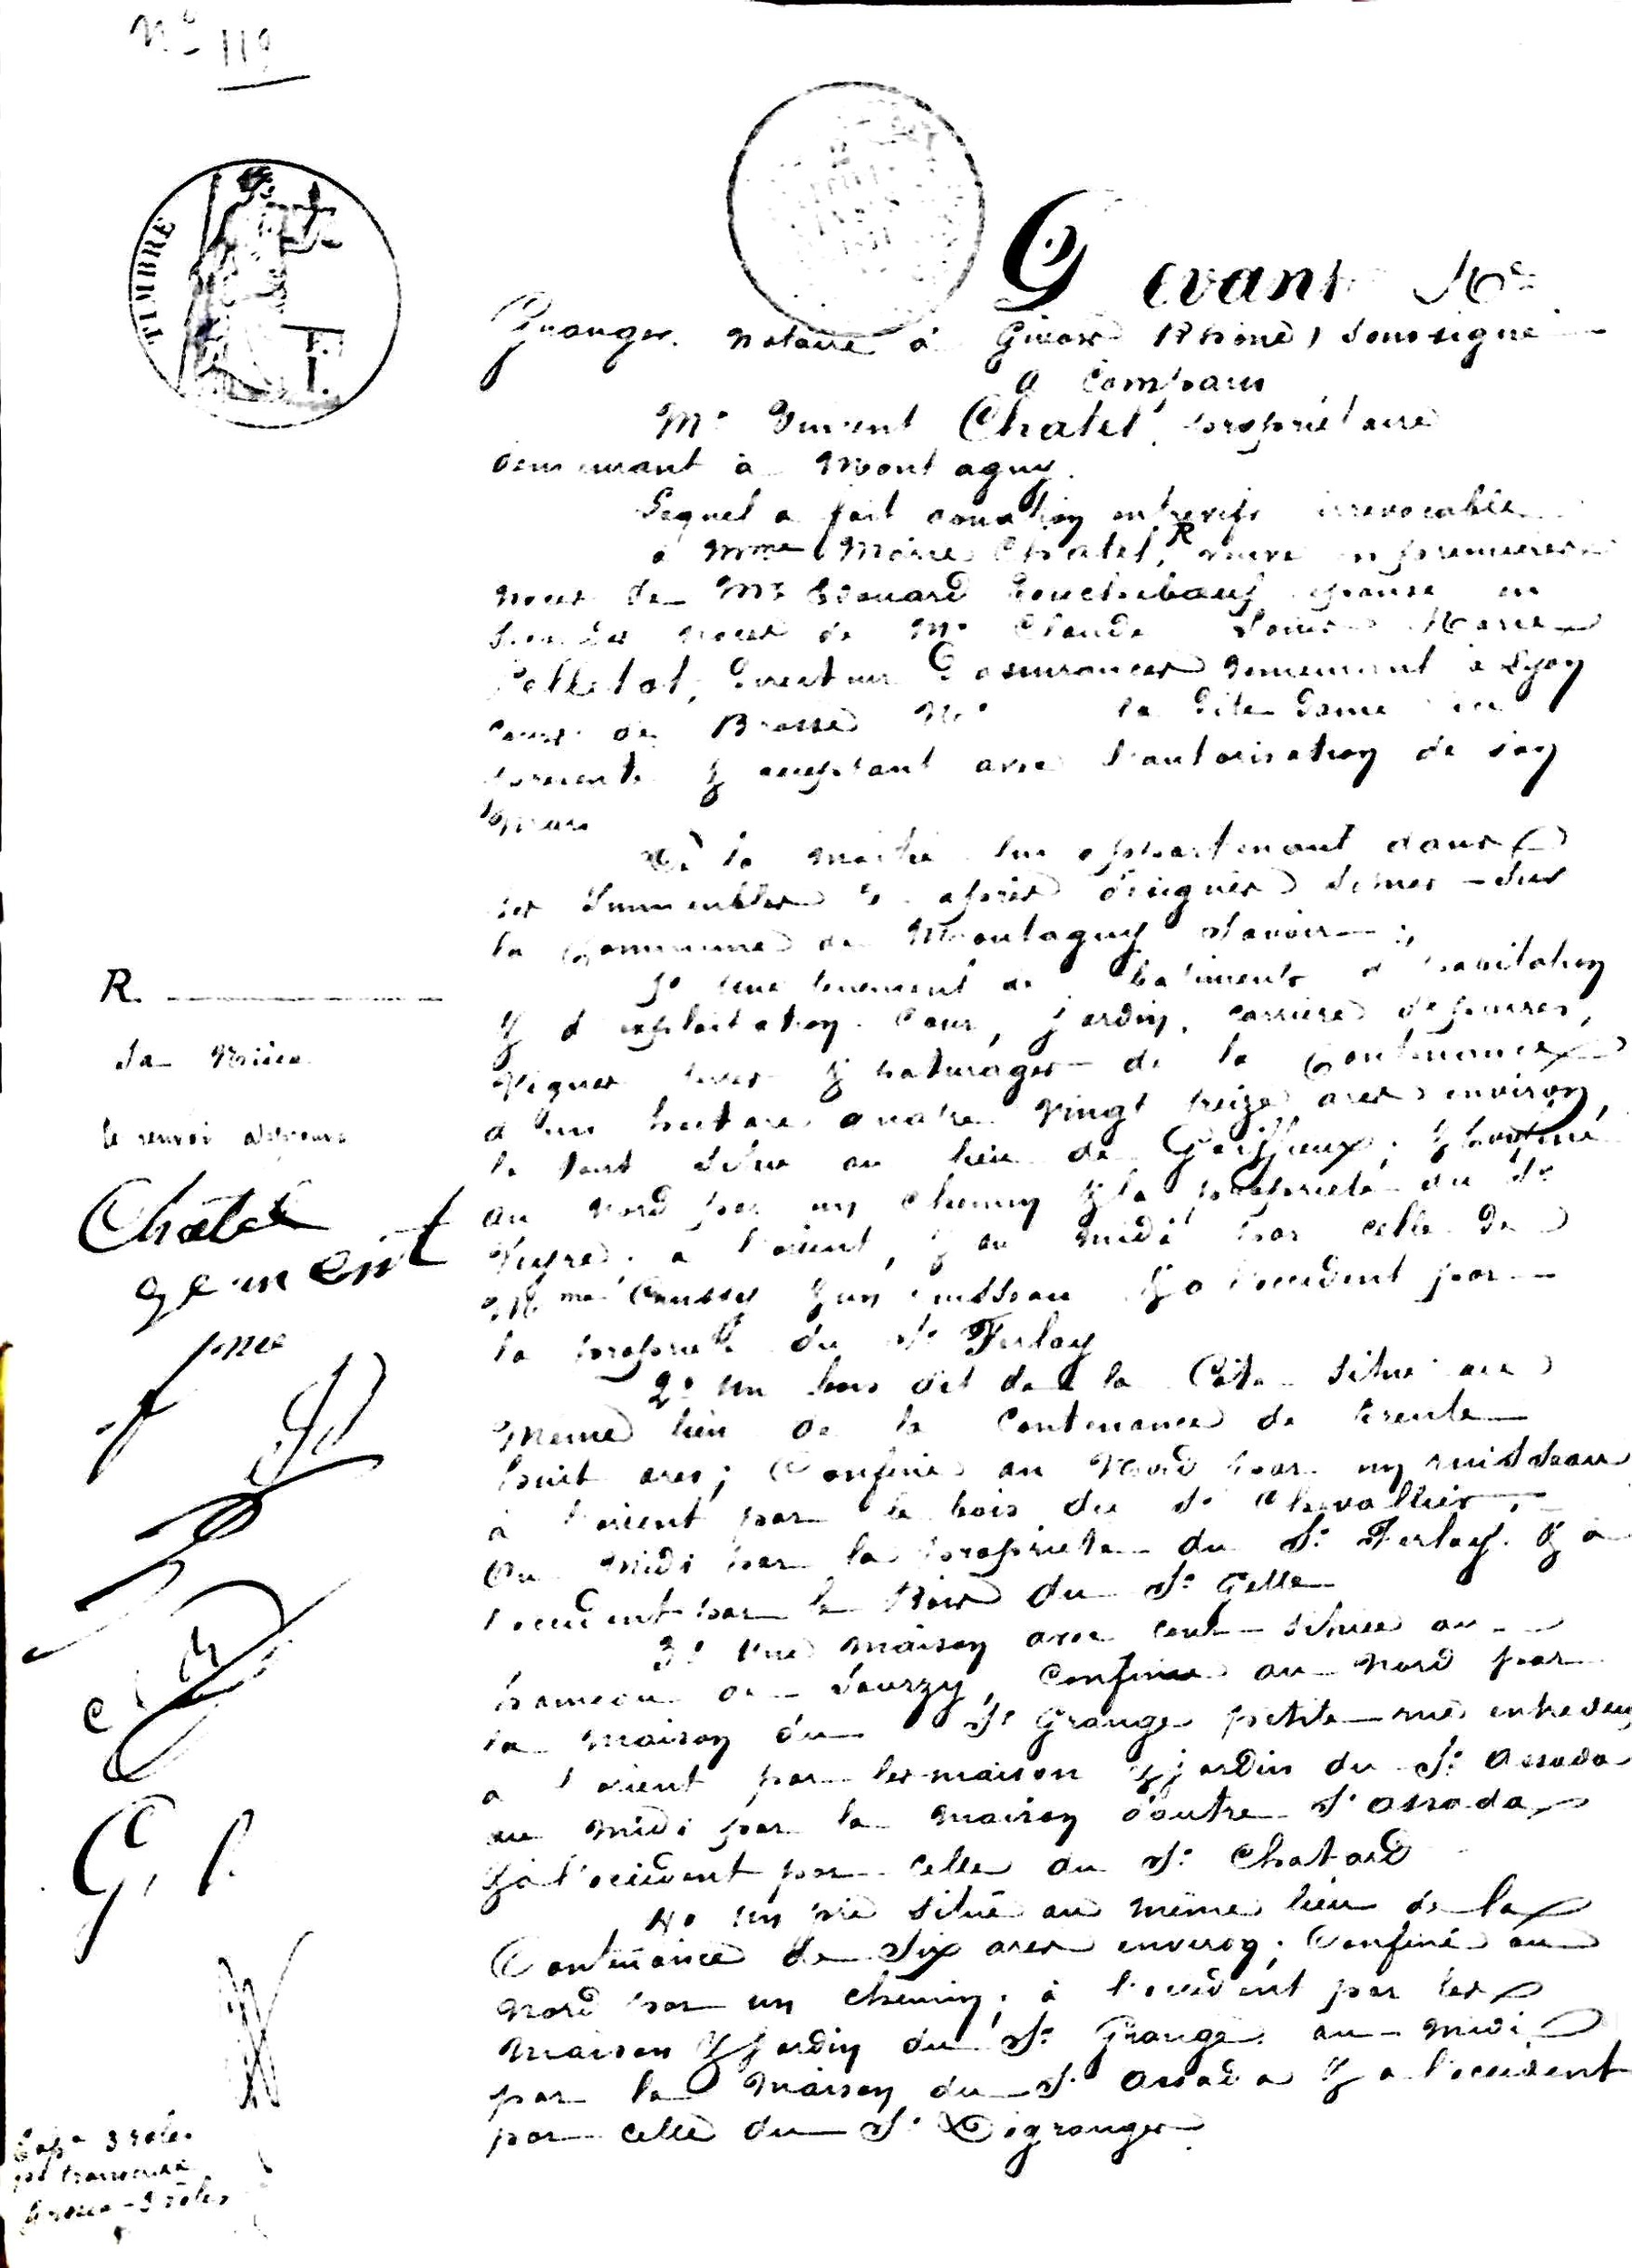 N° 119
TIMBRE
Devant Me
Granger notaire à Givors (Rhône) soussigné
A comparu
Mr Vincent Chatel, propriétaire
demeurant à Montagny.
Lequel a fait donation entrevifs irrévocable
à Mme Marie Chatel, R veuve en premières
noces de Mr Edouard épouse en
secondes noces de Mr Claude Louis Marie
Pelletot, Directeur d'assurances demeurant à Lyon
cours de Brosse No la dite dame ici
présente & acceptant avec l'autorisation de son
mari
De la moitié lui appartenant dans
les immeubles ci après désignés situés sur
la commune de Montagny savoir :
1° Une tenement de batiments d'habitation
& d'exploitation. Cour, jardin, carrière de pierres,
vignes terres & paturages de la contenance
d'un hectare quatre vingt treize ares environ,
le tout situé au lieu de Goiffieux; & confiné
au nord par un chemin & la propriété du Sr
à l'orient, & au midi par celle de
Mme & un ruisseau & à l'occident par
la propriété du Sr Ferlay
2° Un bois dit de la Côte situé au
même lieu de la contenance de trente
huit ares; Confiné au Nord par un ruisseau
à l'orient par le bois du Sr Chevallier,
Au midi par la propriété du Sr Ferlay. & à
l'occident par le Bois du Sr Gelle
3° Une maison avec cour située au
hameau de Sourzy, confinée au nord par
la maison du Sr Grange petite rue entredeux
à l'orient par les maison & jardin du Sr Assada
au midi par la maison d'autre Sr Assada
& à l'occident par celle du Sr Chatard
4° Un pré situé au même lieu de la
Contenance de Six ares environ; Confiné au
nord par un chemin; à l'occident par les
maison & jardin du Sr Grange, au midi
par la maison du Sr Assada & à l'occident
par celle du Sr Degranger
R.
sa Nièce
le renvoi approuvé
Chatel
G. P.
3 roles
Grosse - 3 roles